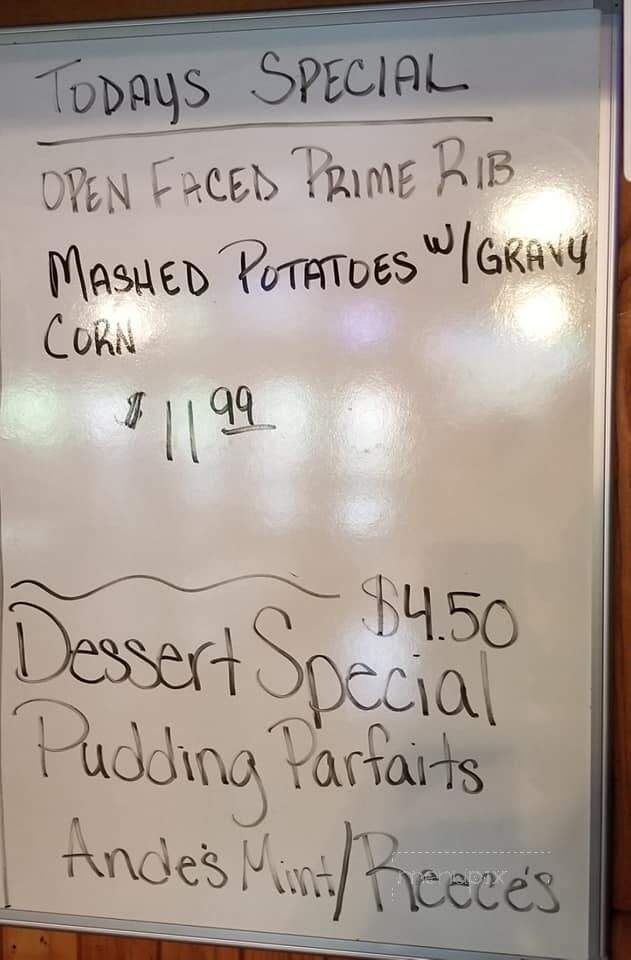 TODAYS SPECIAL
OPEN FACED PRIME RIB
MASHED POTATOES W/GRAVY
CORN
$11 99
$4.50
Dessert Special
Pudding Parfaits
Ande's Mint/Reece's
menupix